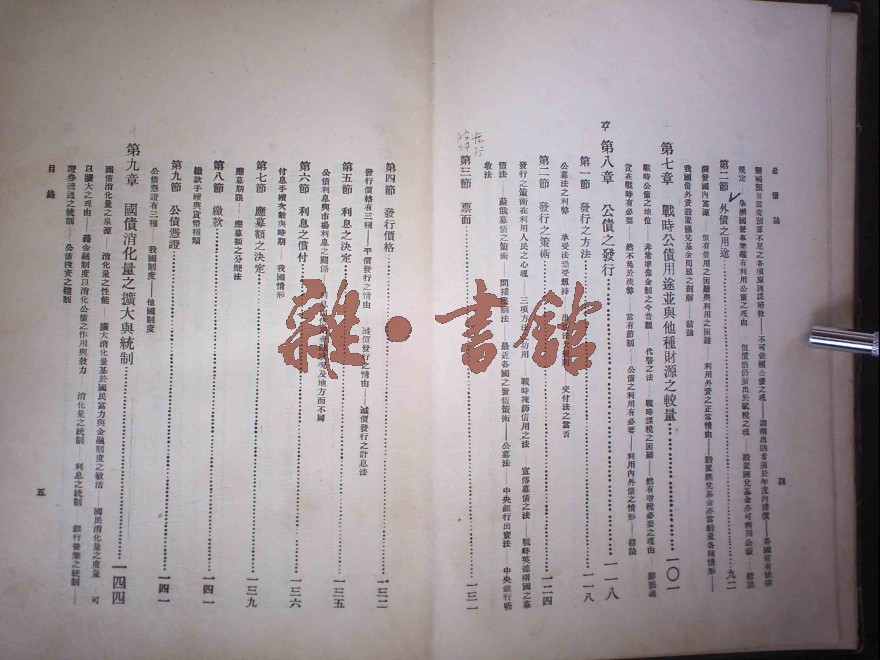 公債論
四
第二節 外債之用途 九二
開發國內富源 但有借用之困難與利用之困難 利用外資之正當情由
我國借外資設置匯兌基金問題之剖解 結論
第七章 戰時公債用途並與他種財源之較量 一〇一
戰時公債之地位 非常準備金制之今昔觀 代替之法 戰時課稅之困難 然有增稅必要之理由
貨在戰時有必要 然不免於流弊 當有節制 公債之利用有必要 利用內外債之情形 結論
第八章 公債之發行 一一八
第一節 發行之方法 一一八
公募法之利弊 承受法恐受挾持 交付法之當否
第二節 發行之策術 一二四
發行之策術在利用人民之心理 三項方法之功用 戰時掩飾信用之法 宣傳募債之法 戰時英德兩國之募
債法 蘇俄募債之策術 最近各國之發債策術 公募法 中央銀行出賣法 中央銀行吸
收法
第三節 票面 一三一
第四節 發行價格 一三二
發行價格有三種 平價發行之情由 減價發行之情由 減價發行之計息法
第五節 利息之決定 一三五
公債利息與市場利息之關係 及地方而不同
第六節 利息之償付 一三六
付息手續次數與時期 我國情形
第七節 應募額之決定 一三九
應募期限 應募額之分配法
第八節 繳款 一四一
繳款手續與貨幣種類
第九節 公債憑證 一四一
公債憑證有三種 我國制度 他國制度
第九章 國債消化量之擴大與統制 一四四
國債消化量之泉源 消化量之性能 擴大消化量基於國民富力與金融制度之敏活 國民消化量之度量 可
以擴大之理由 藉金融制度以消化公債之作用與效力 消化量之統制 利息之統制 銀行營業之統制
證券流通之統制 公債投資之統制
目錄
五
雜·書館